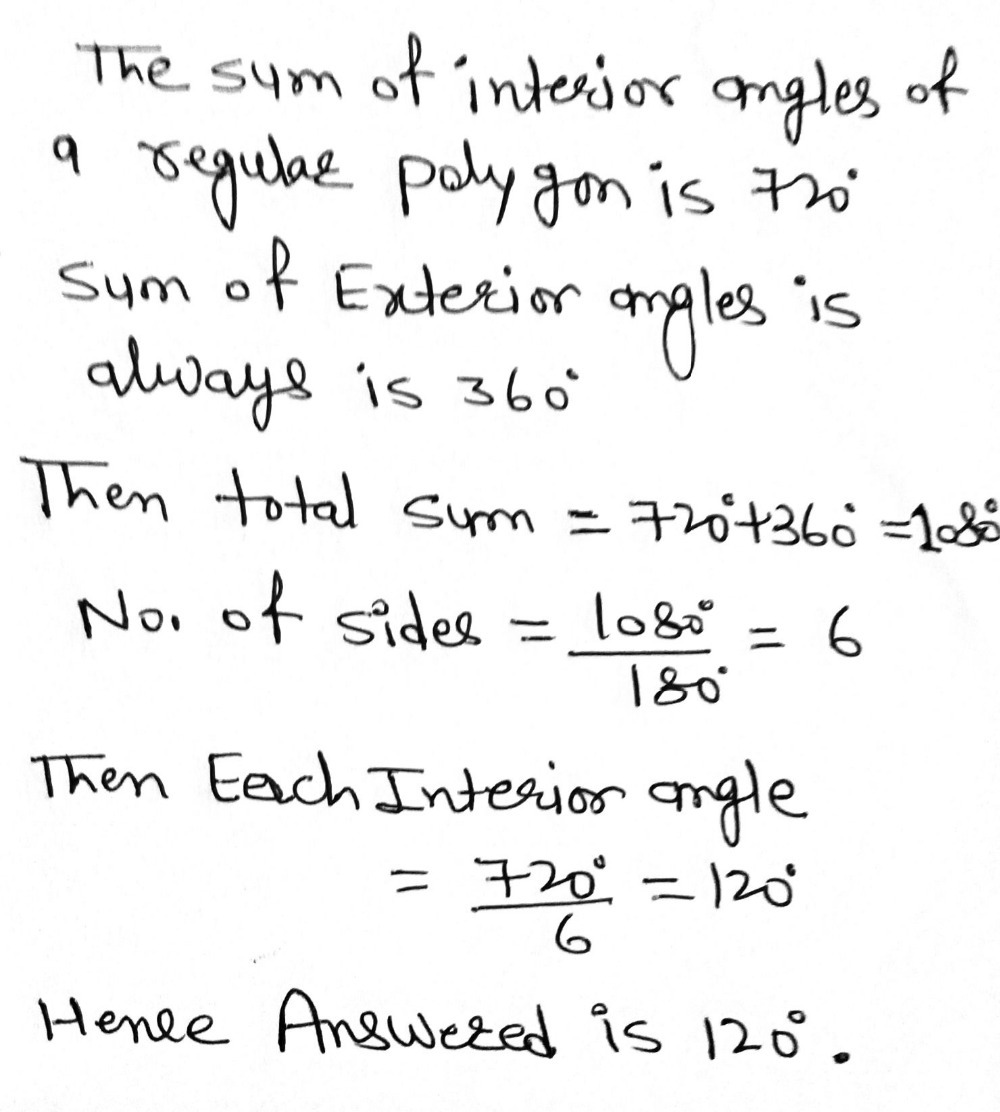 The sum of interior angles of
a regular polygon is 720°
Sum of Exterior angles is
always is 360°
Then total sum = 720°+360° =1080°
No. of sides = 1080°/180° = 6
Then Each Interior angle
= 720°/6 = 120°
Hence Answered is 120°.